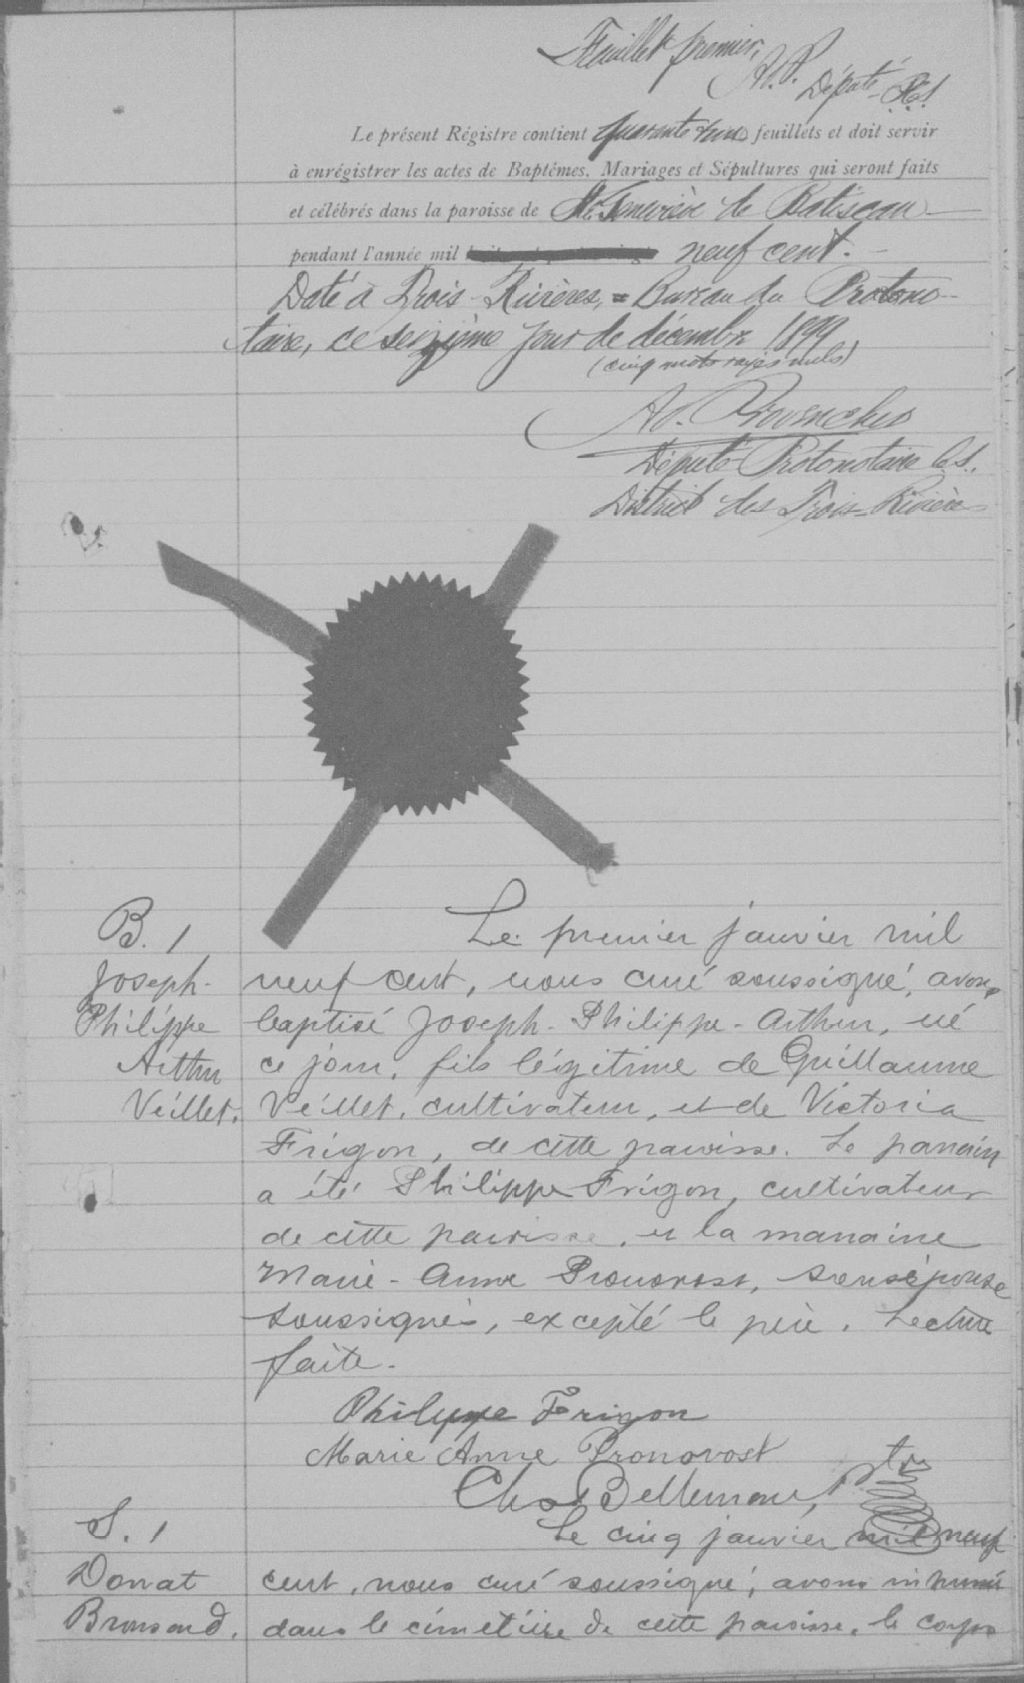 Feuillet premier,
A. P. Député P.C.S
Le présent Régistre contient quarante deux feuillets et doit servir
à enrégistrer les actes de Baptêmes, Mariages et Sépultures qui seront faits
et célébrés dans la paroisse de Ste Geneviève de Batiscan
pendant l'année mil neuf cent.
Daté à Trois-Rivières, = Bureau du Protono-
taire, ce seizième jour de décembre 1899
(cinq mots rayés nuls)
Ad. Provencher
Député Protonotaire C.S.
District des Trois-Rivières
B. 1
Joseph-
Philippe
Arthur
Veillet.
Le premier janvier mil
neuf cent, nous curé soussigné, avons
baptisé Joseph-Philippe-Arthur, né
ce jour, fils légitime de Guillaume
Veillet, cultivateur, et de Victoria
Frigon, de cette paroisse. Le parrain
a été Philippe Frigon, cultivateur
de cette paroisse, et la marraine
Marie-Anne Pronovost, son épouse
soussignés, excepté le père. Lecture
faite.
Philippe Frigon
Marie Anne Pronovost
Chs Bellemare, Ptre
S. 1
Donat
Brousard.
Le cinq janvier mil neuf
cent, nous curé soussigné, avons inhumé
dans le cimetière de cette paroisse, le corps